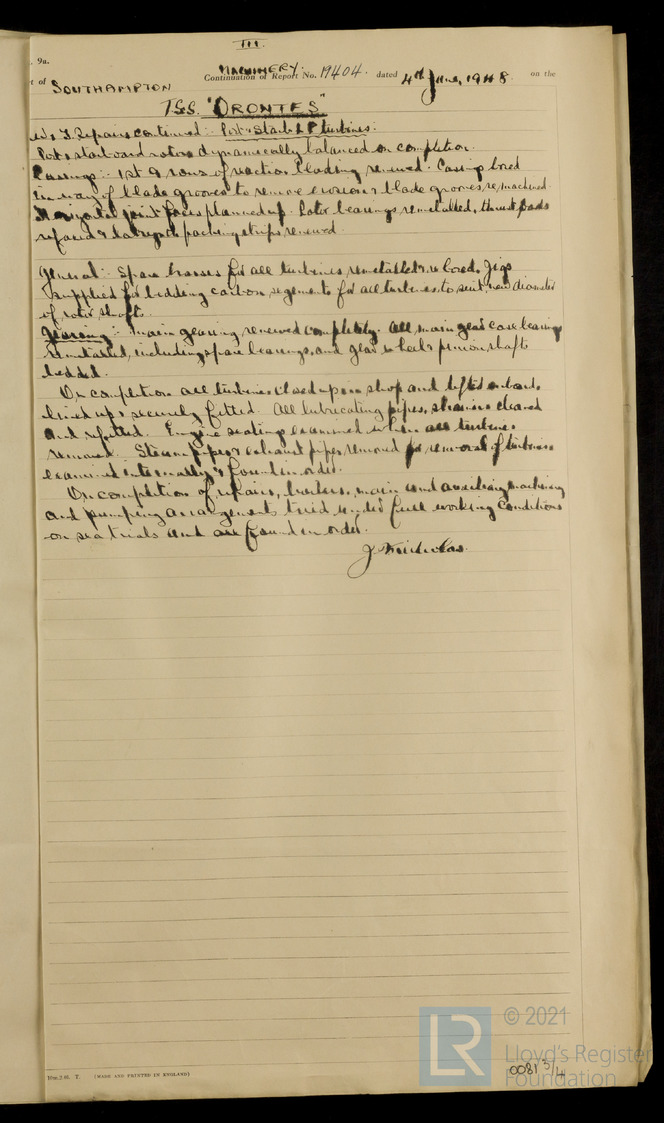 III
. 9a.
t of SOUTHAMPTON
MACHINERY.
Continuation of Report No. 19404. dated 4th June, 1948. on the
T.S.S. "ORONTES"
Repairs continued:- Port & Starbd L.P. turbines.
Port & starboard rotors dynamically balanced on completion.
Casings:- 1st 9 rows of reaction blading renewed. Casing bored
in way of blade grooves to remove erosion & blade grooves re/machined.
Horizontal joint faces planned up. Rotor bearings remetalled, thrust pads
refaced & labyrinth packing strips renewed.
General:- Spare brasses for all turbines, remetalled & re bored. Jigs
supplied for bedding carbon segements for all turbines to suit new diameter
of rotor shaft.
Gearing:- Main gearing renewed completely. All main gear case bearings
remetalled, including spare bearings, and gear wheel & pinion shafts
bedded.
On completion all turbines closed up in shop and lifted onboard,
lined up & securely fitted. All lubricating pipes, strainers cleaned
and refitted. Engine seatings examined when all turbines
removed. Steam pipes & exhaust pipes removed for removal of turbines
examined internally & found in order.
On completion of repairs, boilers, main and auxiliary machinery
and pumping arrangements tried under full working conditions
on sea trials and all found in order.
J Nicholas.
10m,2.46. T. (MADE AND PRINTED IN ENGLAND)
LR
© 2021
Lloyd's Register
Foundation
0081 3/4